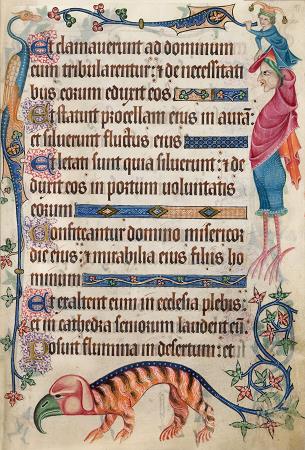 Et clamauerunt ad dominum
cum tribularentur: et de necessitati
bus eorum eduxit eos
Et statuit procellam eius in auram:
et siluerunt fluctus eius
Et letati sunt quia siluerunt: et de
duxit eos in portum uoluntatis
eorum
Confiteantur domino misericor
die eius: et mirabilia eius filiis ho
minum
Et exaltent eum in ecclesia plebis:
et in cathedra seniorum laudent eum
Posuit flumina in desertum: et